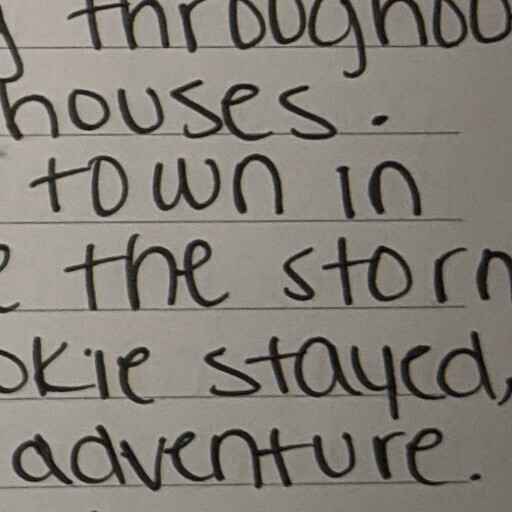 throughou
houses.
town in
the storm
okie stayed,
adventure.